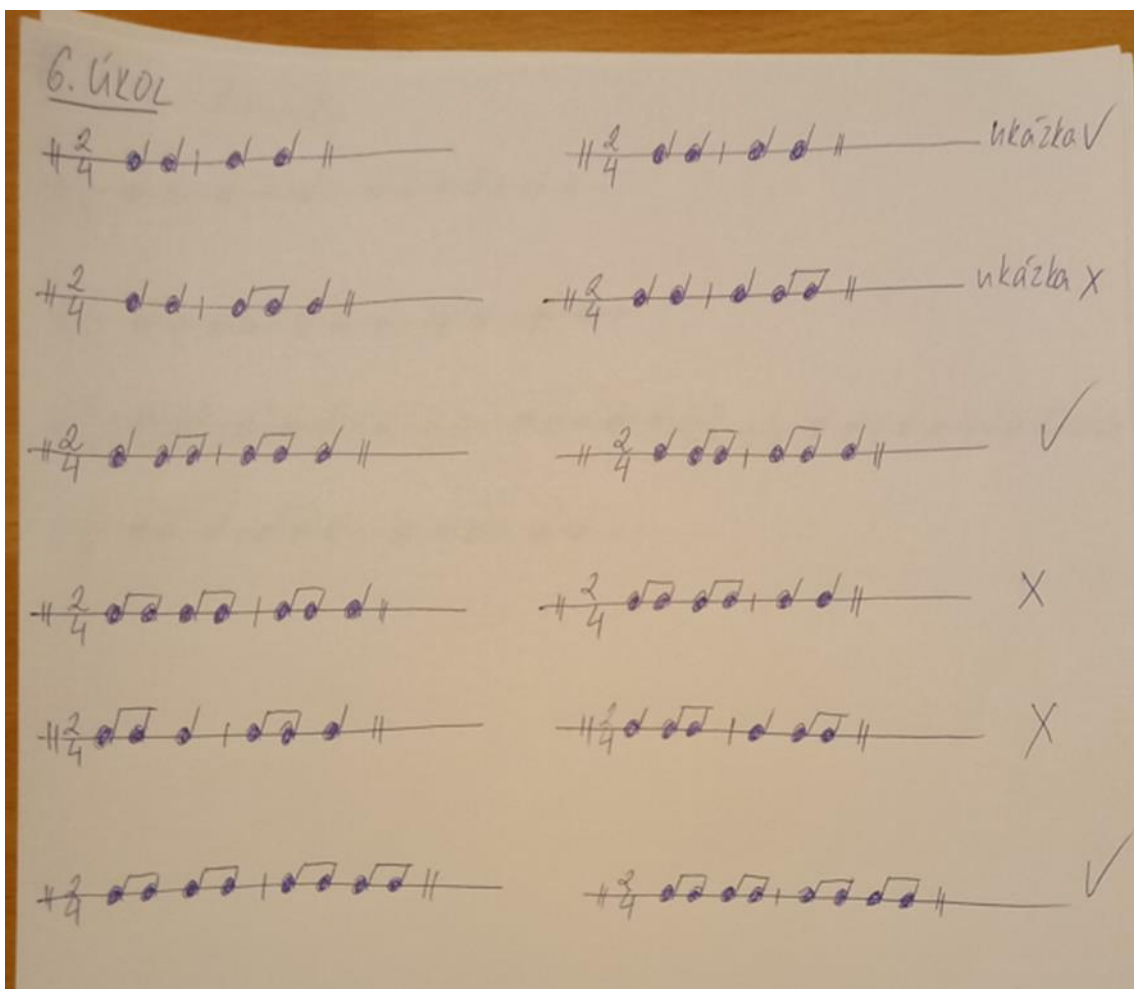 6. ÚKOL
2/4 2/4 ukázka ✓
2/4 2/4 ukázka X
2/4 2/4 ✓
2/4 2/4 X
2/4 2/4 X
2/4 2/4 ✓